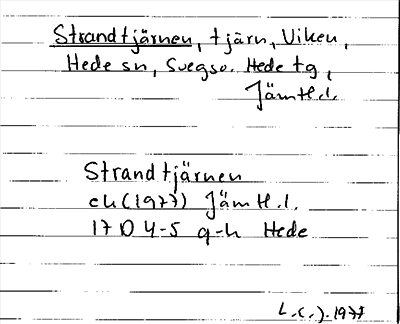 Strandtjärnen, tjärn, Viken,
Hede sn, Svegso. Hede tg,
Jämtl.l.
Strandtjärnen
ek (1977) Jämtl.l.
17 D 4-5 g-h Hede
1977